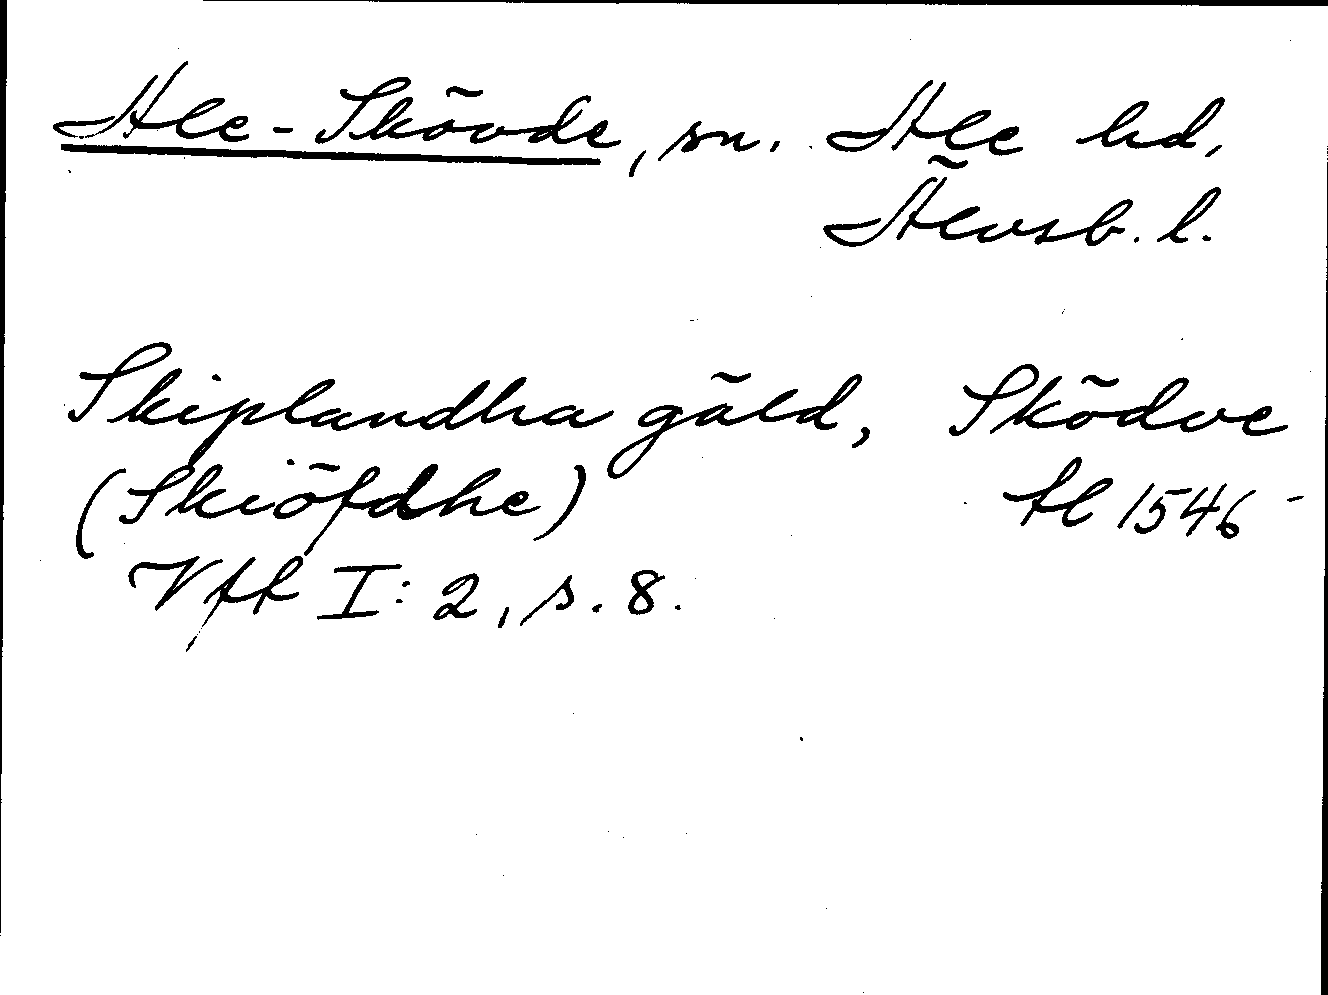 Ale-Skövde, sn. Ale hd,
Älvsb. l.
Skiplandha gäld, Sködve
(Skiöfdhe) tl 1546
Vftk I: 2, s. 8.